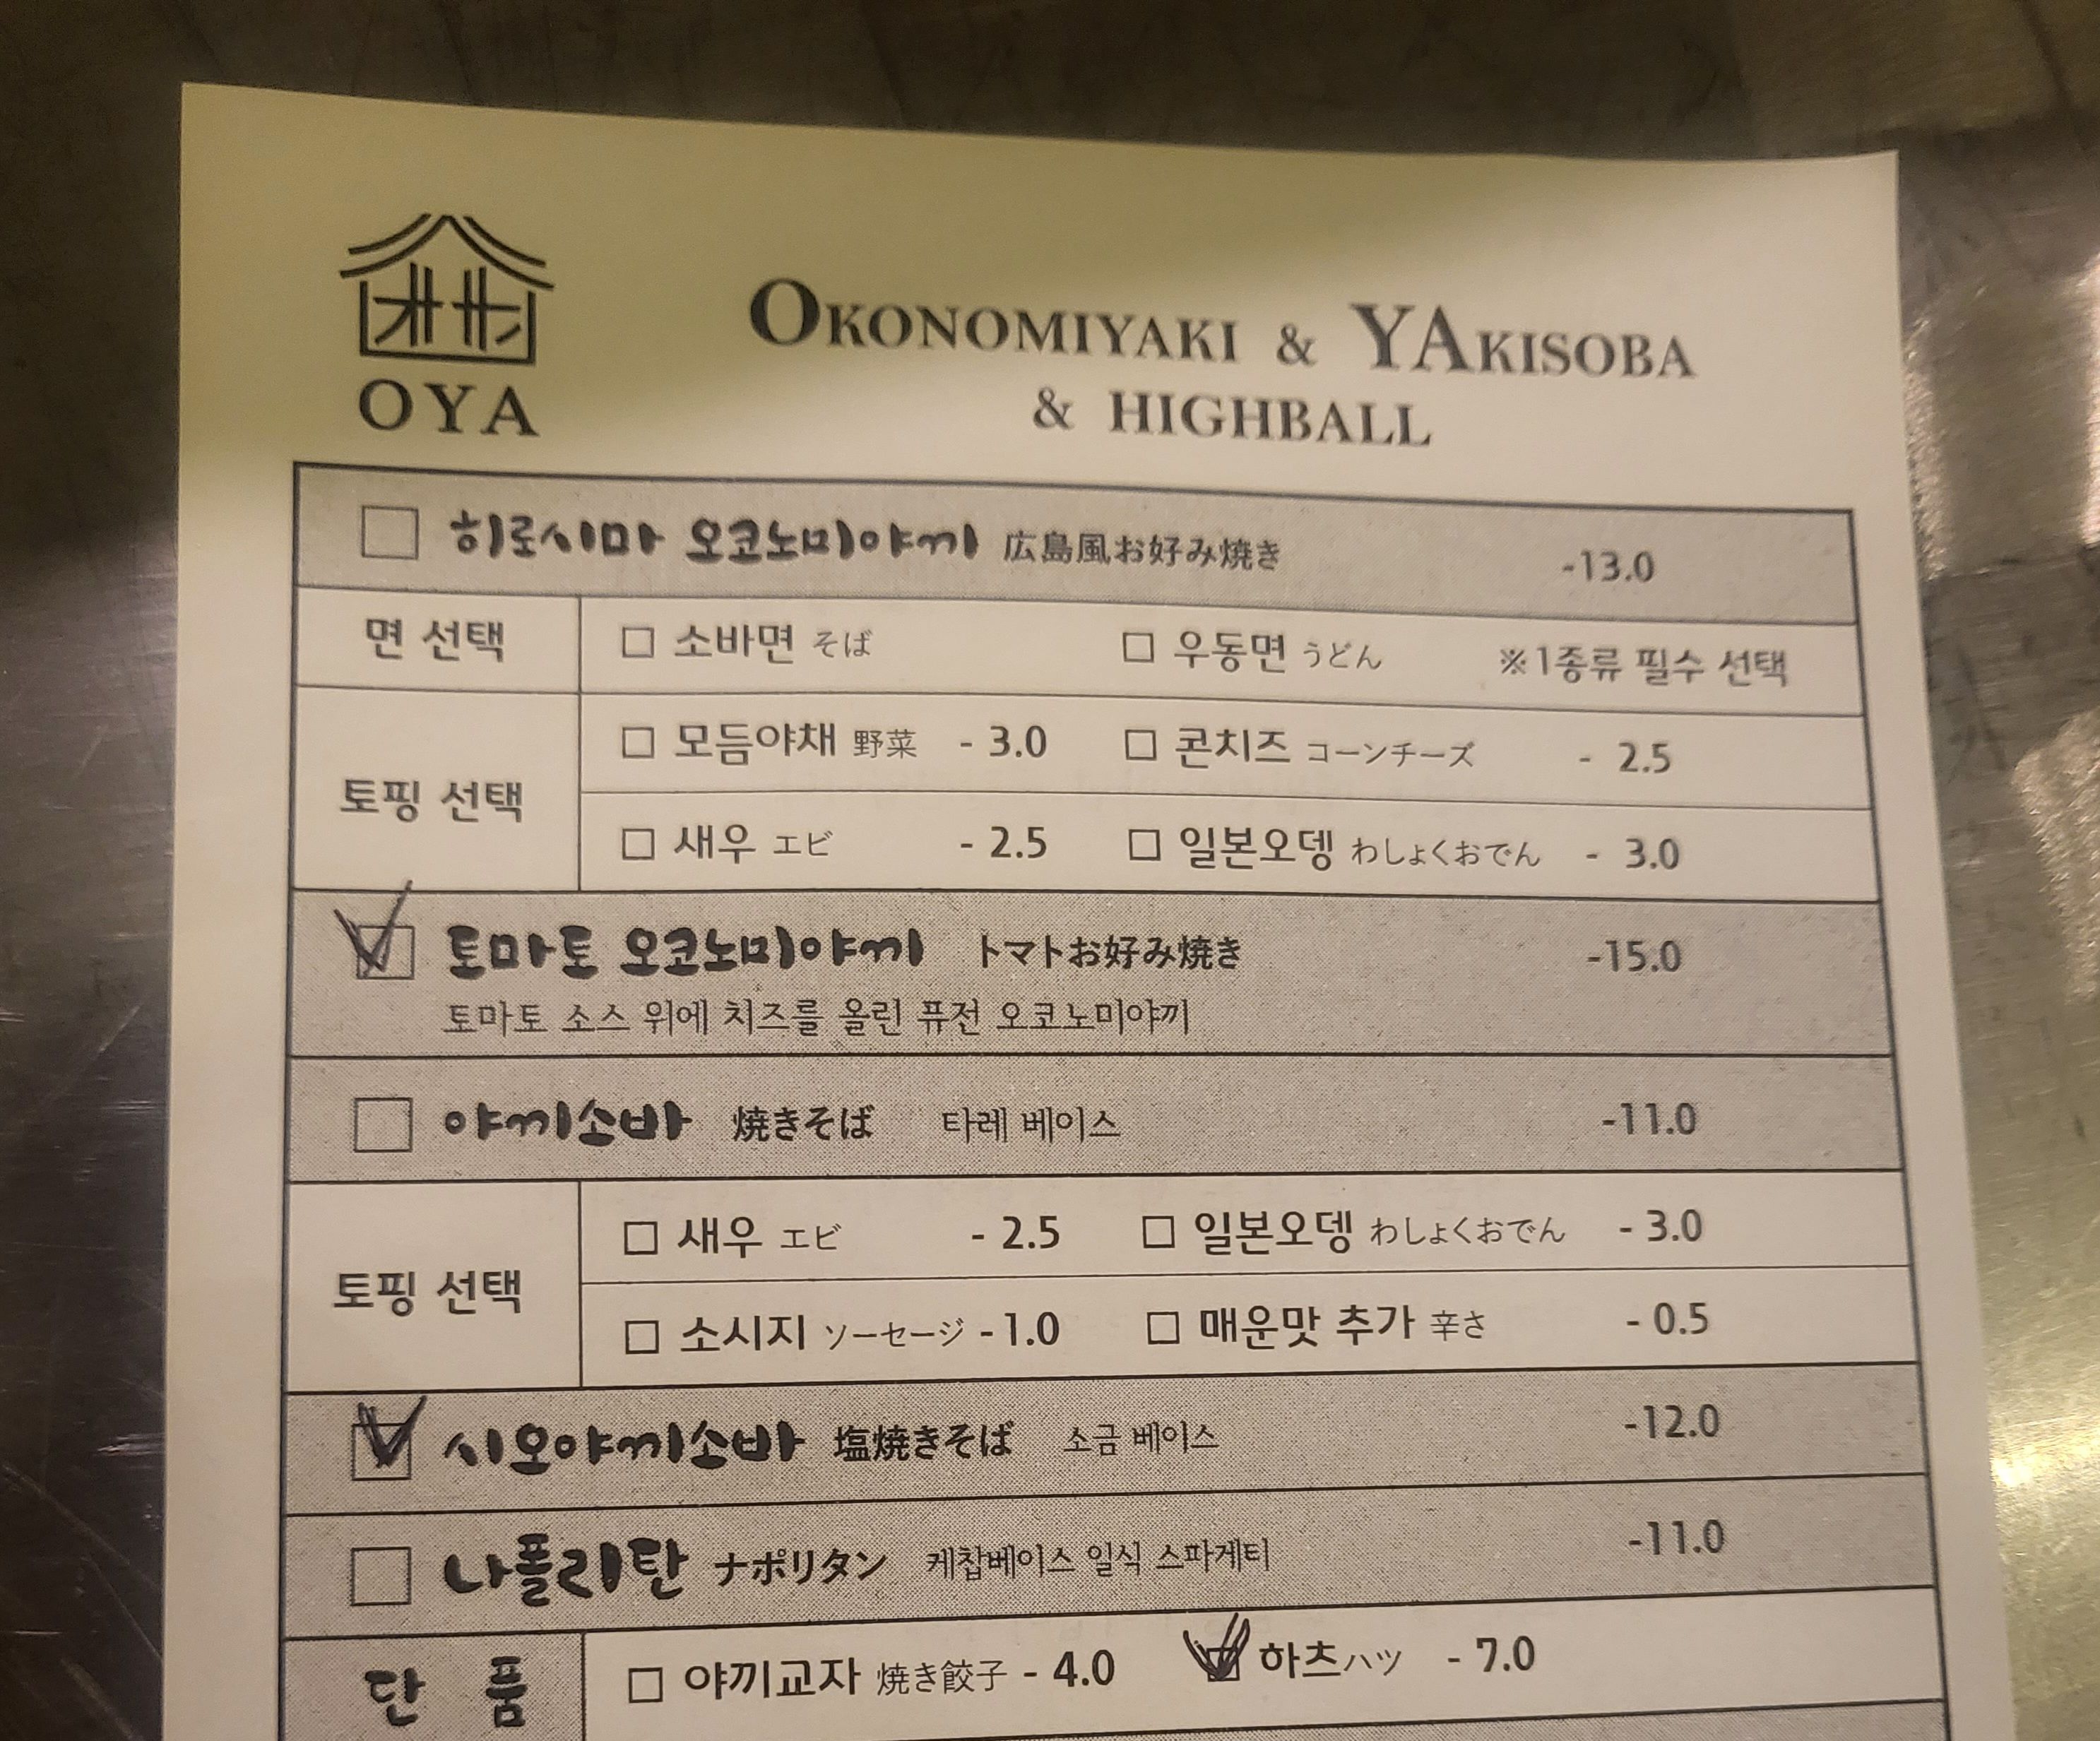 OYA
OKONOMIYAKI & YAKISOBA
& HIGHBALL
히로시마 오코노미야끼 広島風お好み焼き -13.0
면 선택 □ 소바면 そば □ 우동면 うどん ※1종류 필수 선택
토핑 선택
□ 모듬야채 野菜 - 3.0 □ 콘치즈 コーンチーズ - 2.5
□ 새우 エビ - 2.5 □ 일본오뎅 わしょくおでん - 3.0
토마토 오코노미야끼 トマトお好み焼き -15.0
토마토 소스 위에 치즈를 올린 퓨전 오코노미야끼
야끼소바 焼きそば 타레 베이스 -11.0
토핑 선택
□ 새우 エビ - 2.5 □ 일본오뎅 わしょくおでん - 3.0
□ 소시지 ソーセージ -1.0 □ 매운맛 추가 辛さ - 0.5
시오야끼소바 塩焼きそば 소금 베이스 -12.0
나폴리탄 ナポリタン 케찹베이스 일식 스파게티 -11.0
단 품 □ 야끼교자 焼き餃子 - 4.0 하츠 ハツ - 7.0